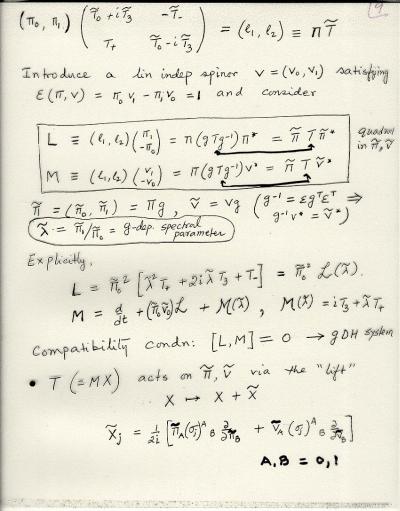 9
(π₀, π₁) ( T̃₀+iT̃₃ -T̃₋ ; T̃₊ T̃₀-iT̃₃ ) = (ℓ₁, ℓ₂) ≡ π T̃
Introduce a lin indep spinor v = (v₀, v₁) satisfying
ε(π, v) = π₀v₁ - π₁v₀ = 1 and consider
L ≡ (ℓ₁, ℓ₂) (π₁ ; -π₀) = π(gTg⁻¹)π* = π̃ T π̃* quadratic
M ≡ (ℓ₁, ℓ₂) (v₁ ; -v₀) = π(gTg⁻¹)v* = π̃ T ṽ* in π̃, ṽ
π̃ = (π̃₀, π̃₁) = πg, ṽ = vg (g⁻¹ = εgᵀεᵀ ⇒
g⁻¹v* = ṽ*)
λ̃ := π̃₁/π̃₀ = g-dep. spectral
parameter
Explicitly,
L = π̃₀² [λ̃²T₊ + 2iλ̃T₃ + T₋] = π̃₀² ℒ(λ̃).
M = d/dt + (π̃₀ṽ₀)ℒ + M(λ̃), M(λ̃) = iT₃ + λ̃T₊
Compatibility condn: [L, M] = 0 → gDH system
• T (=MX) acts on π̃, ṽ via the "lift"
X ↦ X + X̃
X̃ⱼ = 1/2i [π̃_A(σⱼ)^A_B ∂/∂π̃_B + ṽ_A(σⱼ)^A_B ∂/∂ṽ_B]
A, B = 0, 1